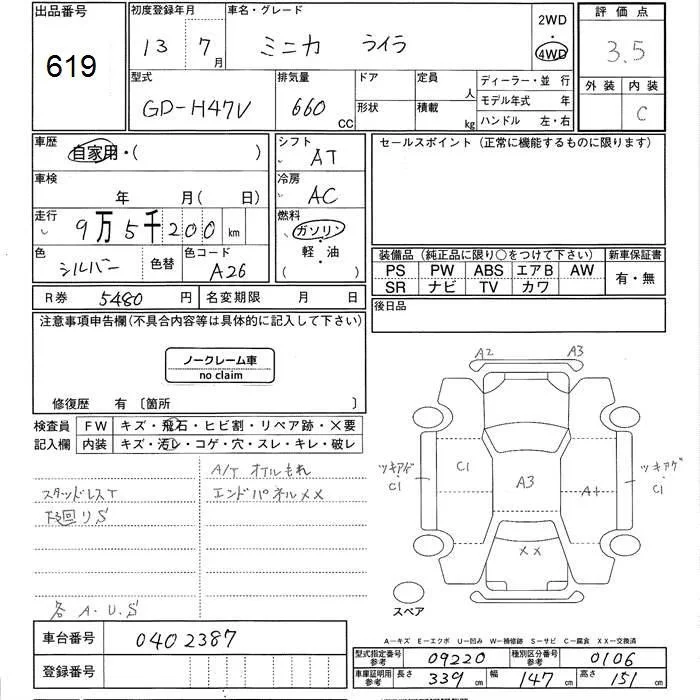 出品番号 619
初度登録年月 13 7月
車名・グレード ミニカ ライラ
2WD ・ 4WD
評価点 3.5
外装 内装 C
型式 GD-H47V
排気量 660 CC
ドア 形状
定員 人
積載 kg
ディーラー・並 行
モデル年式 年
ハンドル 左・右
車歴 自家用・( )
シフト AT
車検 年 月(日)
冷房 AC
走行 9万5千200 km
燃料 ガソリン・軽・油 ( )
色 シルバー 色替
色コード A26
セールスポイント(正常に機能するものに限ります)
装備品(純正品に限り○をつけて下さい) 新車保証書
PS PW ABS エアB AW 有・無
SR ナビ TV カワ
R券 5480 円 名変期限 月 日
後日品
注意事項申告欄(不具合内容等は具体的に記入して下さい)
ノークレーム車
no claim
修復歴 有 〔箇所 〕
検査員 FW キズ・飛石・ヒビ割・リペア跡・×要
記入欄 内装 キズ・汚レ・コゲ・穴・スレ・キレ・破レ
A/T オイルもれ
スタッドレスT エンドパネルXX
下回りS
各 A.U.S
A2 A3
ツキアゲ・C1 C1 A3 A1 ツキアゲ・C1
XX
スペア
A−キズ E−エクボ U−凹み W−補修跡 S−サビ C−腐食 XX−交換済
車台番号 0402387
登録番号
型式指定番号参考 09220 種別区分番号参考 0106
車庫証明用参考 長さ 339 cm 幅 147 cm 高さ 151 cm